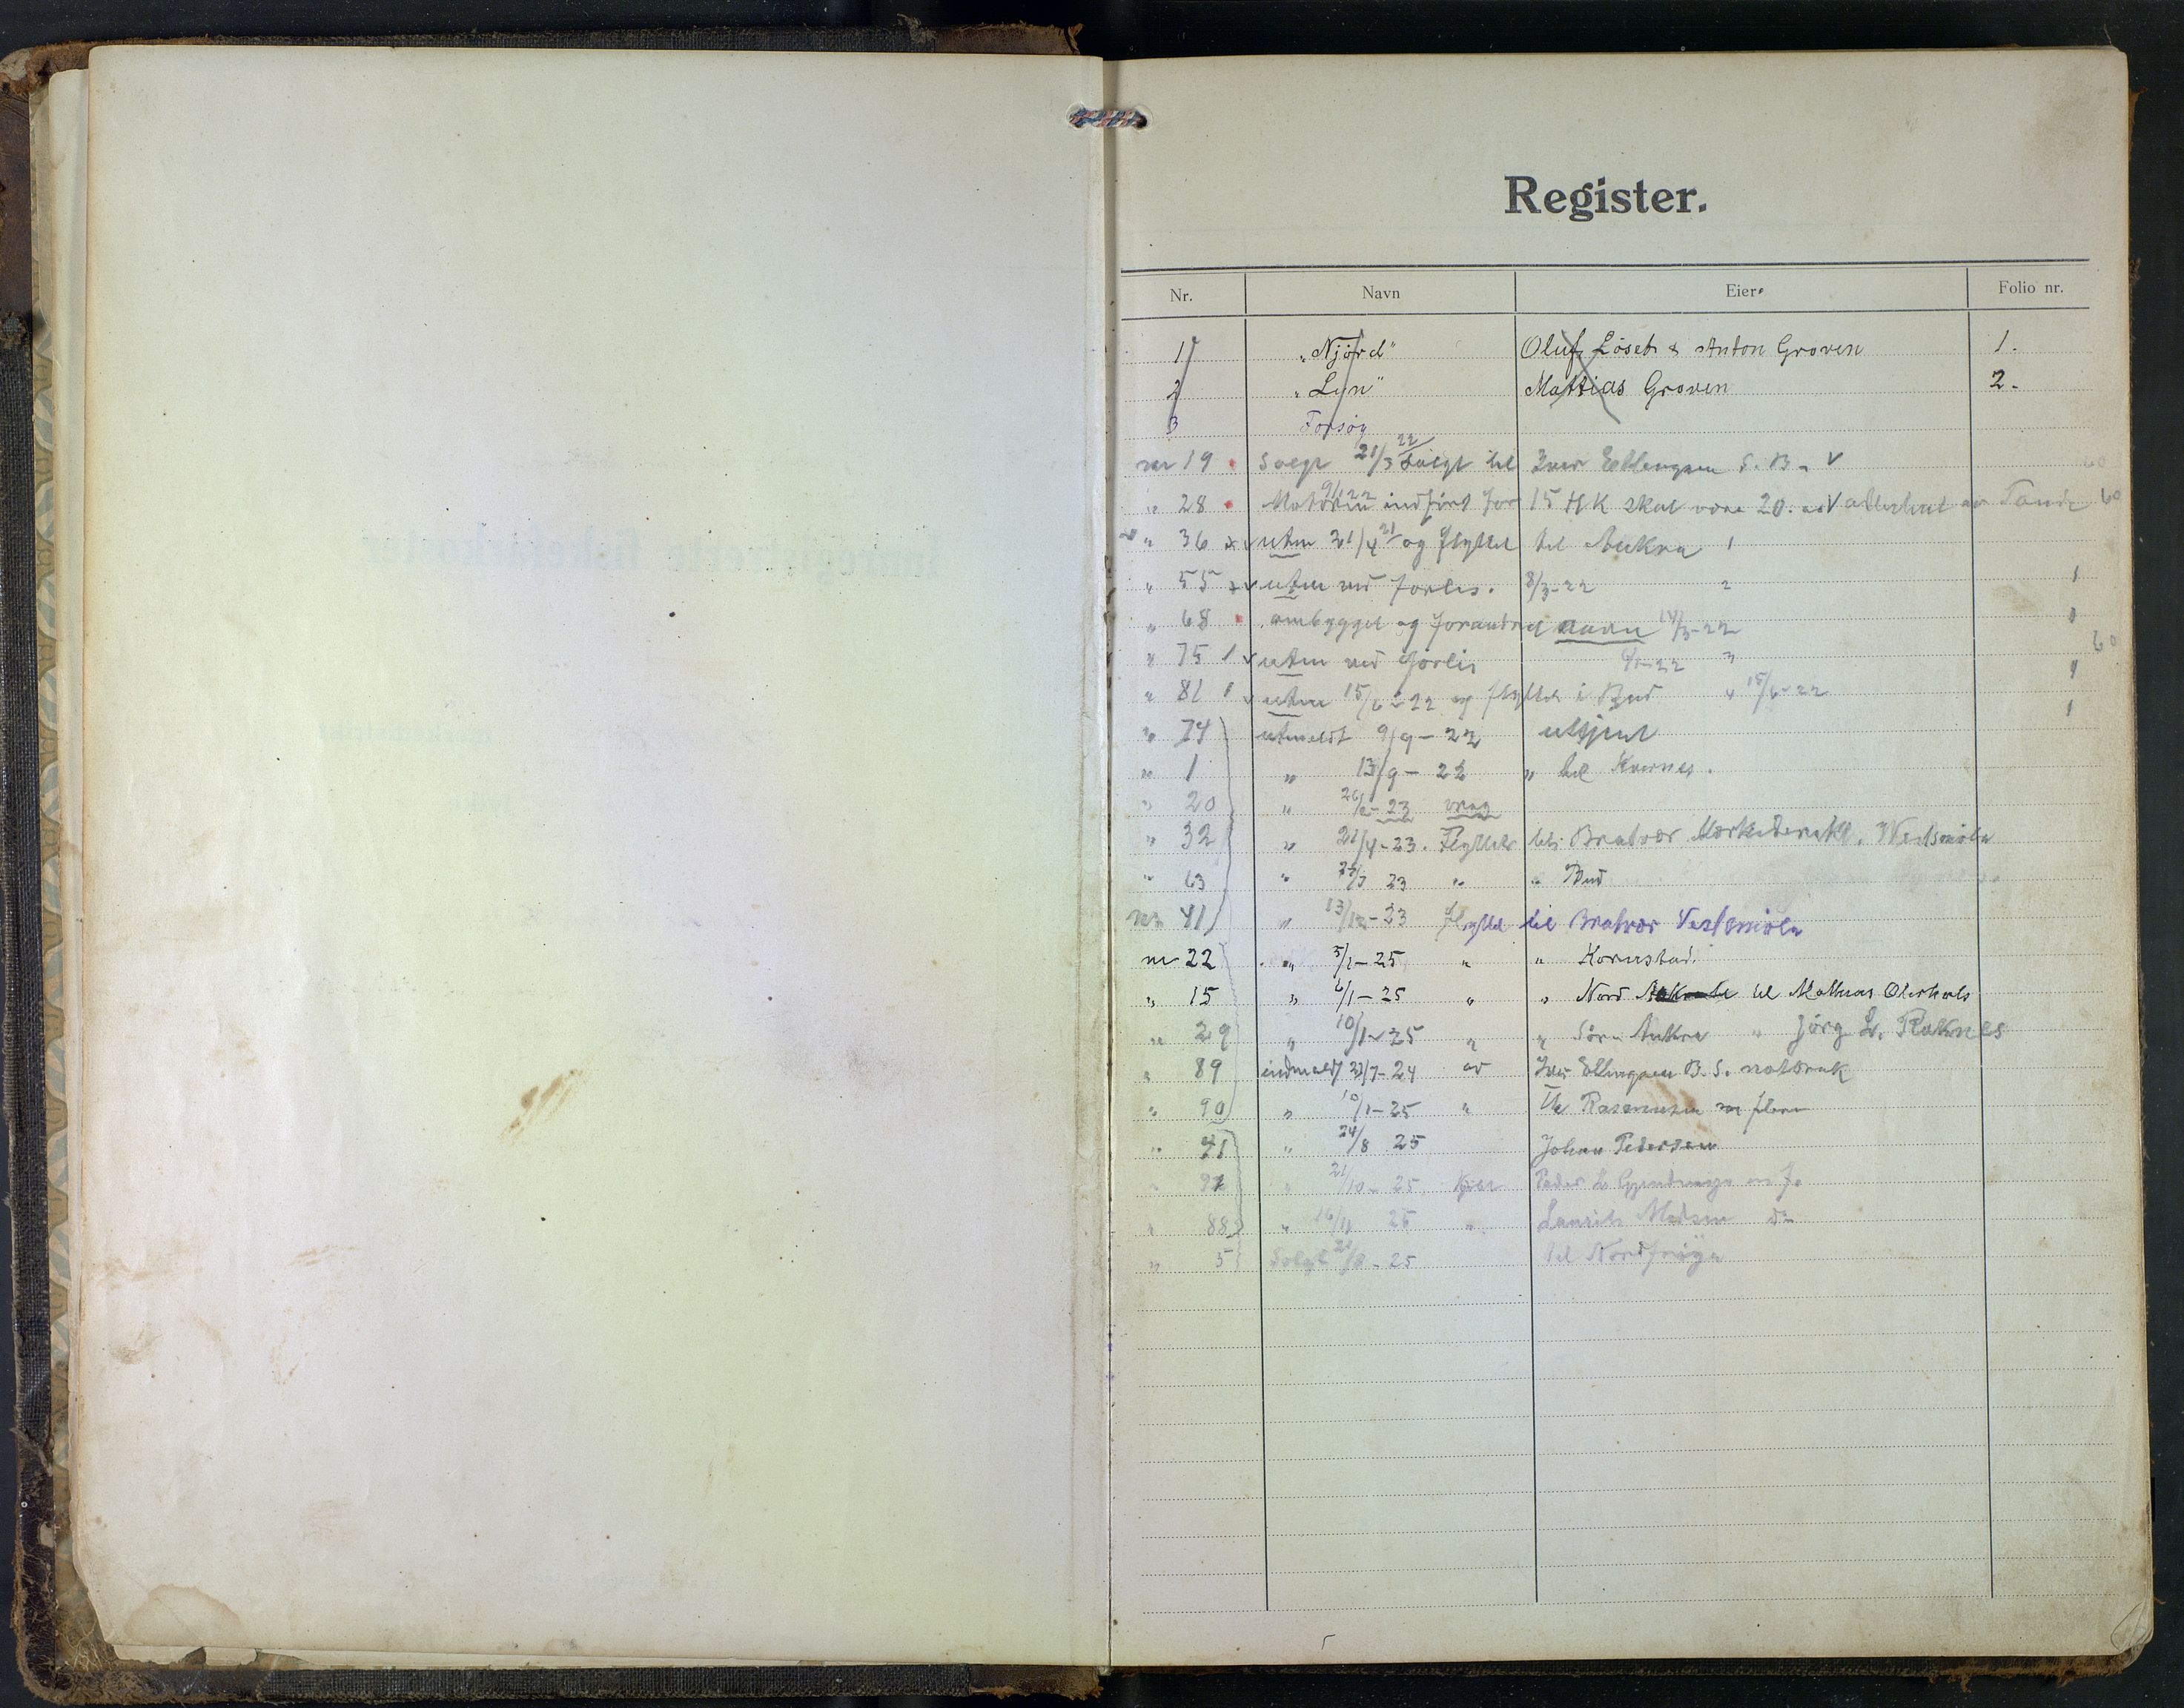 Register.
Nr. Navn Eier. Folio nr.
1 "Njørd" Oluf Løseth & Anton Groven 1.
2 "Lyn" Mattias Groven 2.
3 Forsøg
nr 19 Solgt 21/3 22 Solgt til Iver Ellingsen S. B. V
" 28 Motoren indført for 15 HK skal være 20. 60
" 36 utm 21/4 21 og flyttet til Aukra
" 55 utm ved forlis. 8/3-22 "
" 68 ombygget og forandret navn 14/3-22
" 75 utm ved forlis -22 " 60
" 81 utm 15/6-22 og flyttet i Bud " 15/6-22
" 74 utmeldt 9/9-22 uttjent
" 1 " 13/9-22 " til Kvernes.
" 20 " 26/2-23 vrag
" 32 " 21/4-23. Flyttet til Bratvær Merkedistrikt.
" 63 " 23 " " Bud
nr 41 " 13/12-23 flyttet til Bratvær Vestsmøla
nr 22 " 5/1-25 " " Kornstad.
" 15 " 6/1-25 " " Nord til Mathias
" 29 " 10/1-25 " " Sør-Aukra " Jørg L. Raknes
" 89 indmeldt 23/7-24 av Iver Ellingsen B. S. notbruk
" 90 " 10/1-25 " Rasmussen m flere
" 24/8 25 Johan Pedersen
" " 21/10-25 Kjøbt Peder
" 88 " 16/11 25 " Laurits Madsen do
" 5 Solgt -25 til Nordfrøya